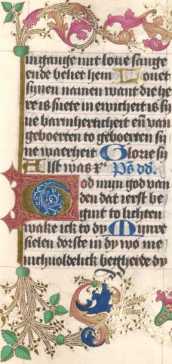 ingange mit loue sange
ende beliet hem Louet
sijnen namen want die he
re is suete in ewicheit is sij
ne barmherticheit en̄ van
geboerten to geboerten sij
ne waerheit Glorie sy
Alst was
God myn god van
den dat ierste be
gint to lichten
wake ick to dy Mynre
sielen dorste in dy wo me
nichuoldelick begheide dy